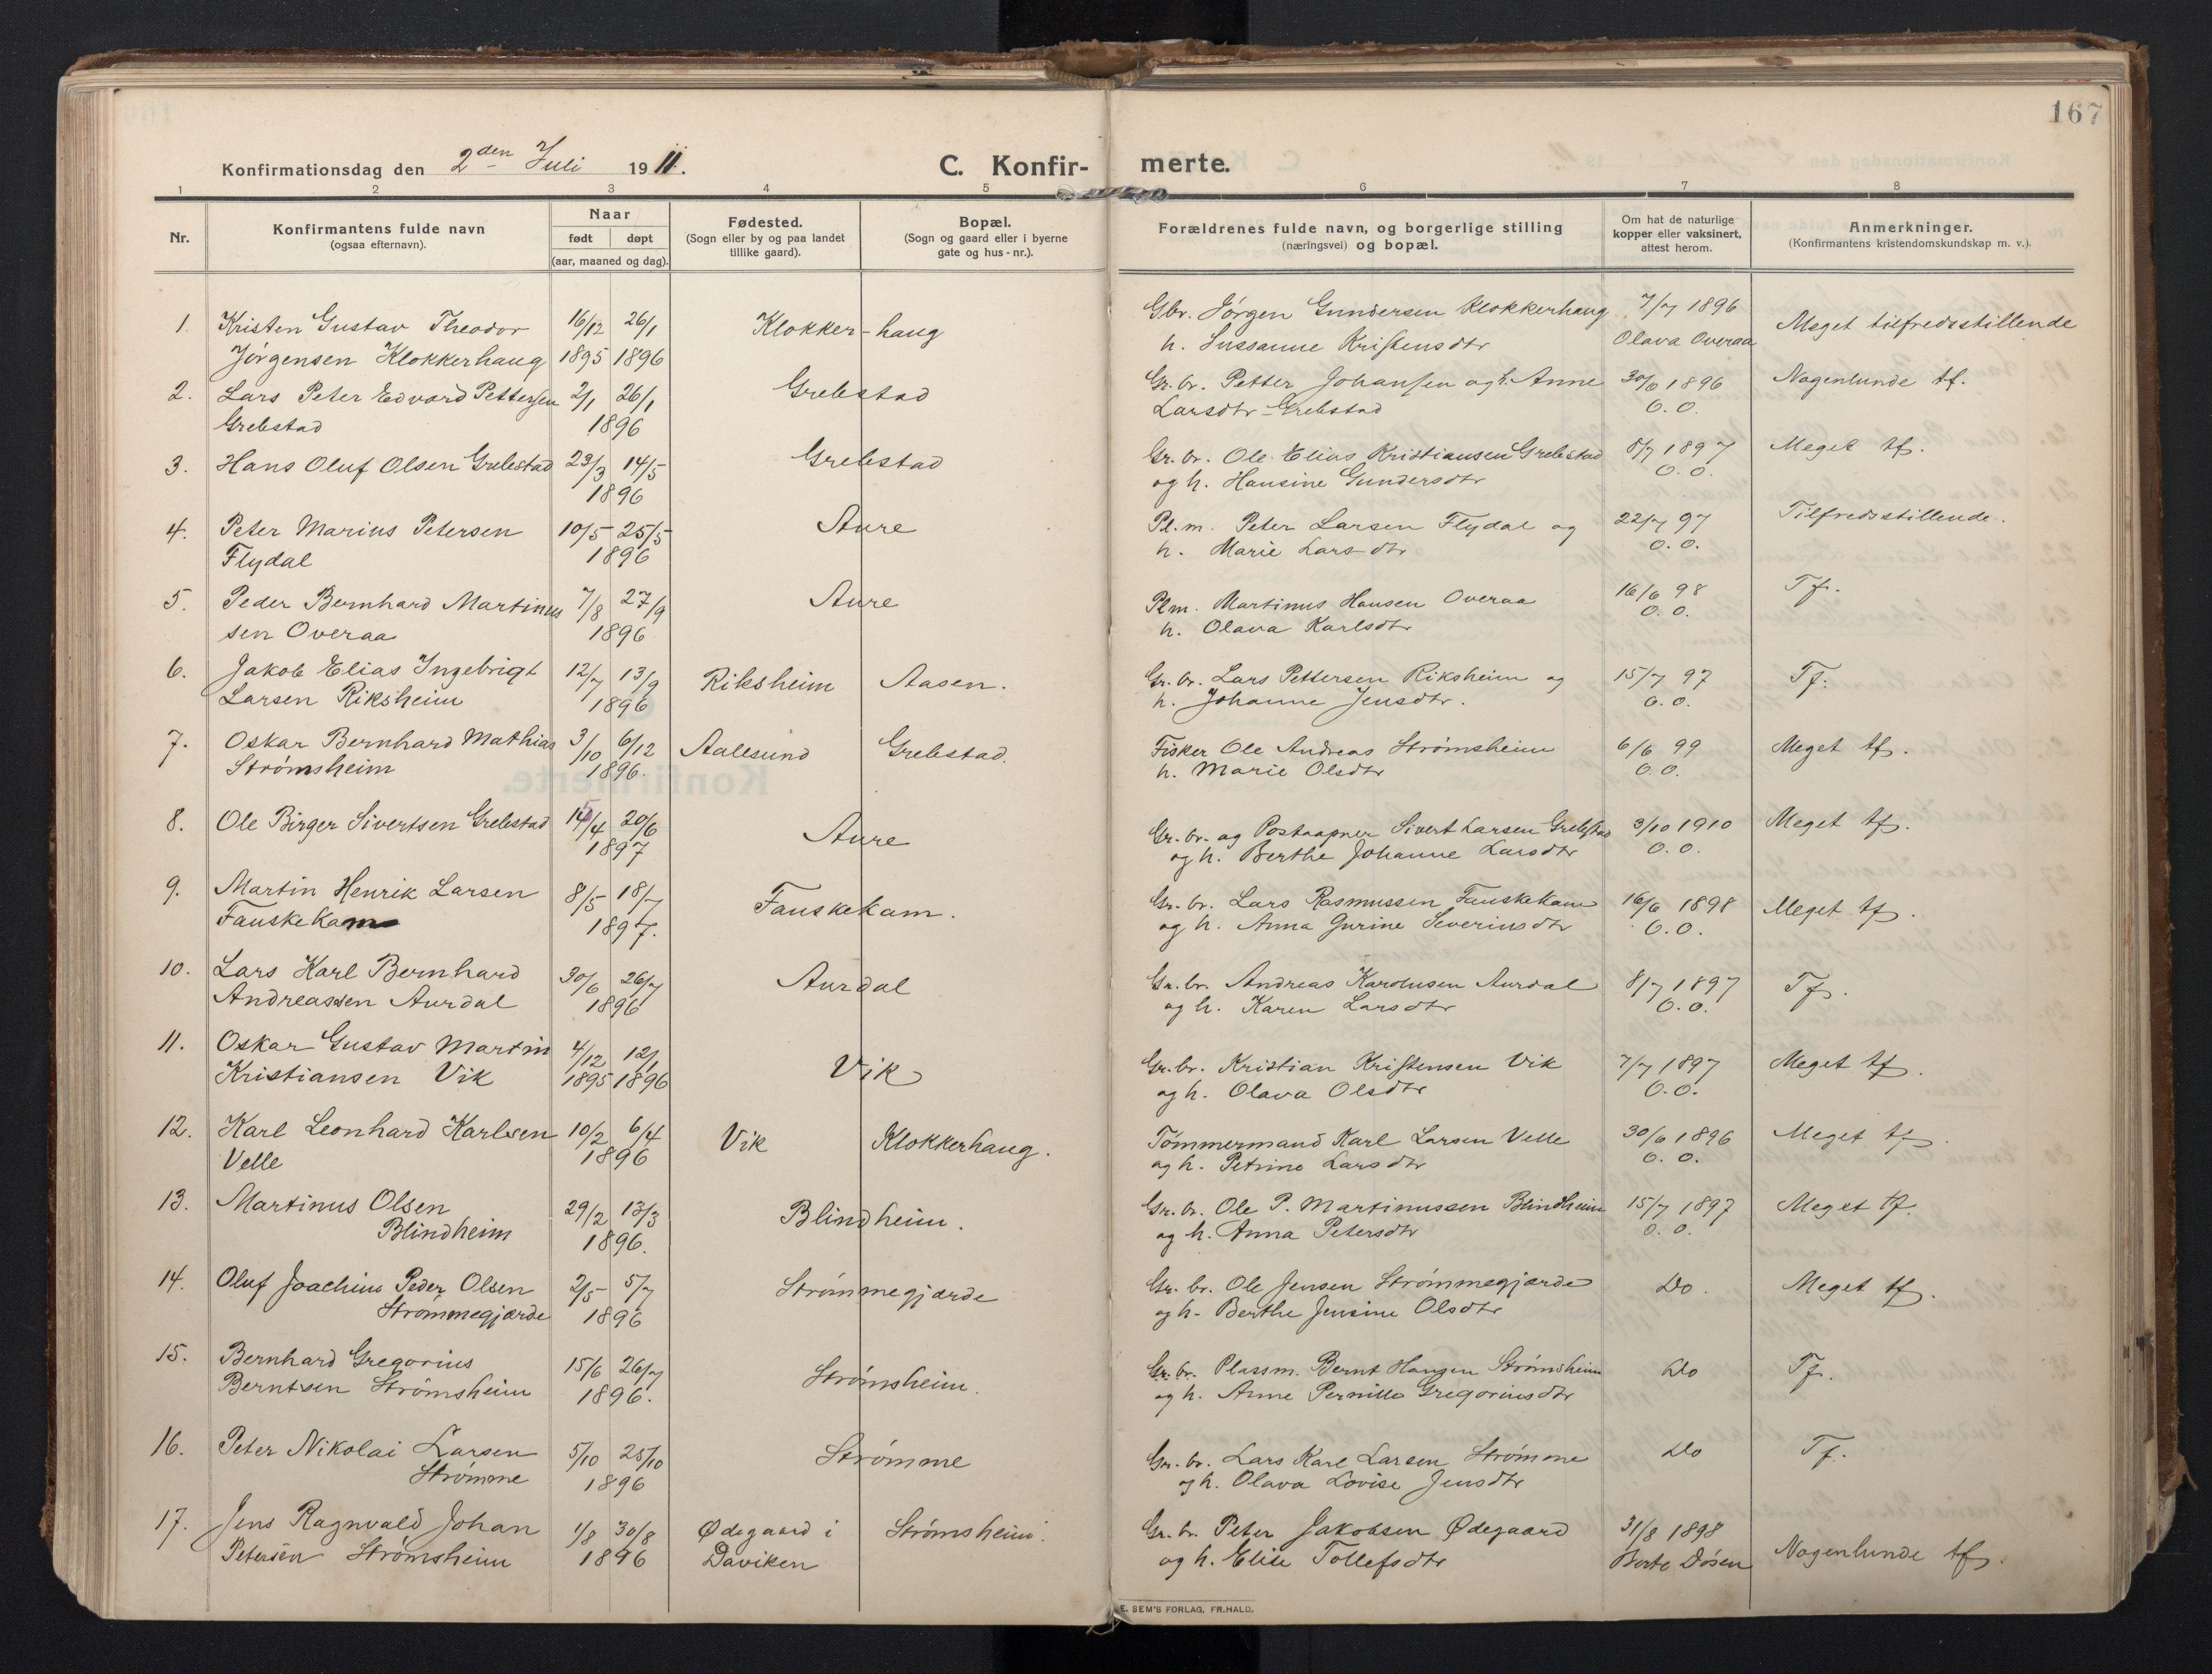 167
Konfirmationsdag den 2den Juli 1911.
C. Konfir- merte.
1 2 3 4 5 6 7 8
Nr.
Konfirmantens fulde navn
(ogsaa efternavn).
Naar
født døpt
(aar, maaned og dag).
Fødested.
(Sogn eller by og paa landet
tillike gaard).
Bopæl.
(Sogn og gaard eller i byerne
gate og hus-nr.).
Forældrenes fulde navn, og borgerlige stilling
(næringsvei) og bopæl.
Om hat de naturlige
kopper eller vaksinert,
attest herom.
Anmerkninger.
(Konfirmantens kristendomskundskap m. v.).
1. Kristen Gustav Theodor 16/12 26/1 Klokker-haug Gbr. Jørgen Gundersen Klokkerhaug 7/7 1896 Meget tilfredsstillende
Jørgensen Klokkerhaug 1895 1896 h. Sussanne Kristensdtr Olava Overaa
2. Lars Peter Edvard Pettersen 2/1 26/1 Grebstad Gr. br. Petter Johansen og h. Anne 30/6 1896 Nogenlunde tf.
Grebstad 1896 Larsdtr Grebstad O. O.
3. Hans Oluf Olsen Grebstad 23/3 14/5 Grebstad Gr. br. Ole Elias Kristiansen Grebstad 8/7 1897 Meget tf.
1896 og h. Hansine Gundersdtr O. O.
4. Peter Marius Petersen 10/5 25/5 Aure Pl. m. Peter Larsen Flydal og 22/7 97 Tilfredsstillende.
Flydal 1896 h. Marie Larsdtr O. O.
5. Peder Bernhard Martinus 7/8 27/9 Aure Plm. Martinus Hansen Overaa 16/6 98 Tf.
sen Overaa 1896 h. Olava Karlsdtr O. O.
6. Jakob Elias Ingebrigt 12/7 13/9 Riksheim Aasen. Gr. br. Lars Pettersen Riksheim og 15/7 97 Tf.
Larsen Riksheim 1896 h. Johanne Jensdtr. O. O.
7. Oskar Bernhard Mathias 3/10 6/12 Aalesund Grebstad. Fisker Ole Andreas Strømsheim 6/6 99 Meget tf.
Strømsheim 1896. h. Marie Olsdtr O. O.
8. Ole Birger Sivertsen Grebstad 15/4 20/6 Aure Gr. br. og Postaapner Sivert Larsen Grebstad 3/10 1910 Meget tf.
1897 og h. Berthe Johanne Larsdtr O. O.
9. Martin Henrik Larsen 8/5 18/7 Fauskekam. Gr. br. Lars Rasmussen Fauskekam 16/6 1898 Meget tf.
Fauskekam 1897. og h. Anna Gurine Severinsdtr O. O.
10. Lars Karl Bernhard 30/6 26/7 Aurdal Gr. br. Andreas Karolusen Aurdal 8/7 1897 Tf.
Andreassen Aurdal 1896 og h. Karen Larsdtr O. O.
11. Oskar Gustav Martin 4/12 12/1 Vik Gr. br. Kristian Kristensen Vik 7/7 1897 Meget tf.
Kristiansen Vik 1895 1896 og h. Olava Olsdtr O. O.
12. Karl Leonhard Karlsen 10/2 6/4 Vik Klokkerhaug. Tømmermand Karl Larsen Velle 30/6 1896 Meget tf.
Velle 1896 og h. Petrine Larsdtr O. O.
13. Martinus Olsen 29/2 13/3 Blindheim. Gr. br. Ole P. Martinussen Blindheim 15/7 1897 Meget tf.
Blindheim 1896. og h. Anna Petersdtr O. O.
14. Oluf Joachim Peder Olsen 2/5 5/7 Strømmegjærde Gr. br. Ole Jensen Strømmegjærde Do. Meget tf.
Strømmegjærde 1896 og h. Berthe Jensine Olsdtr
15. Bernhard Gregorius 15/6 26/7 Strømsheim. Gr. br. Plassm. Bernt Hansen Strømsheim Do Tf.
Berntsen Strømsheim 1896. og h. Anne Pernille Gregoriusdtr
16. Peter Nikolai Larsen 5/10 25/10 Strømme Gr. br. Lars Karl Larsen Strømme Do Tf.
Strømme 1896 og h. Olava Lovise Jensdtr
17. Jens Ragnvald Johan 1/8 30/8 Ødegaard i Strømsheim. Gr. br. Peter Jakobsen Ødegaard 31/8 1898 Nogenlunde tf.
Petersen Strømsheim 1896 Daviken og h. Elise Tollefsdtr Berte Døsen
E. SEM'S FORLAG, FR.HALD.